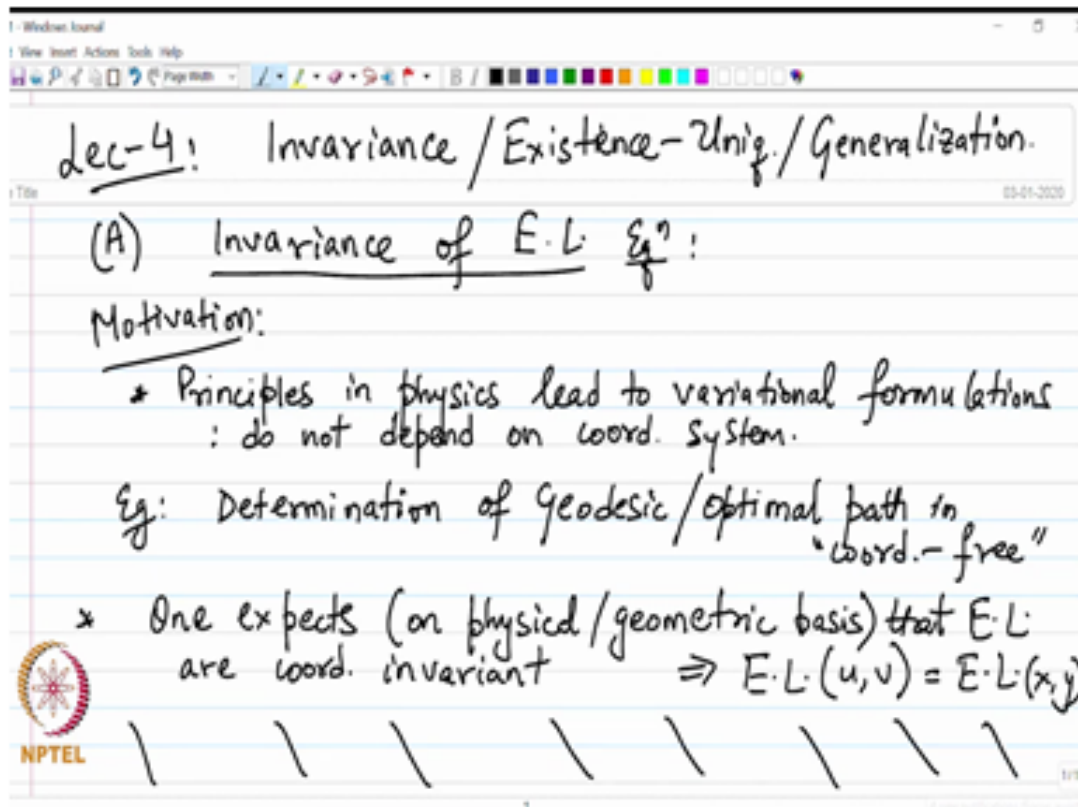 - Windows Journal
View Insert Actions Tools Help
Page Width
B I
Lec-4: Invariance / Existence-Uniq. / Generalization.
Title
03-01-2020
(A) Invariance of E.L. Eqⁿ :
Motivation:
* Principles in physics lead to variational formulations
: do not depend on coord. system.
Eg: Determination of Geodesic / Optimal path in
"coord.- free"
* One expects (on physical / geometric basis) that E.L.
are coord. invariant ⇒ E.L.(u,v) = E.L.(x,y)
NPTEL